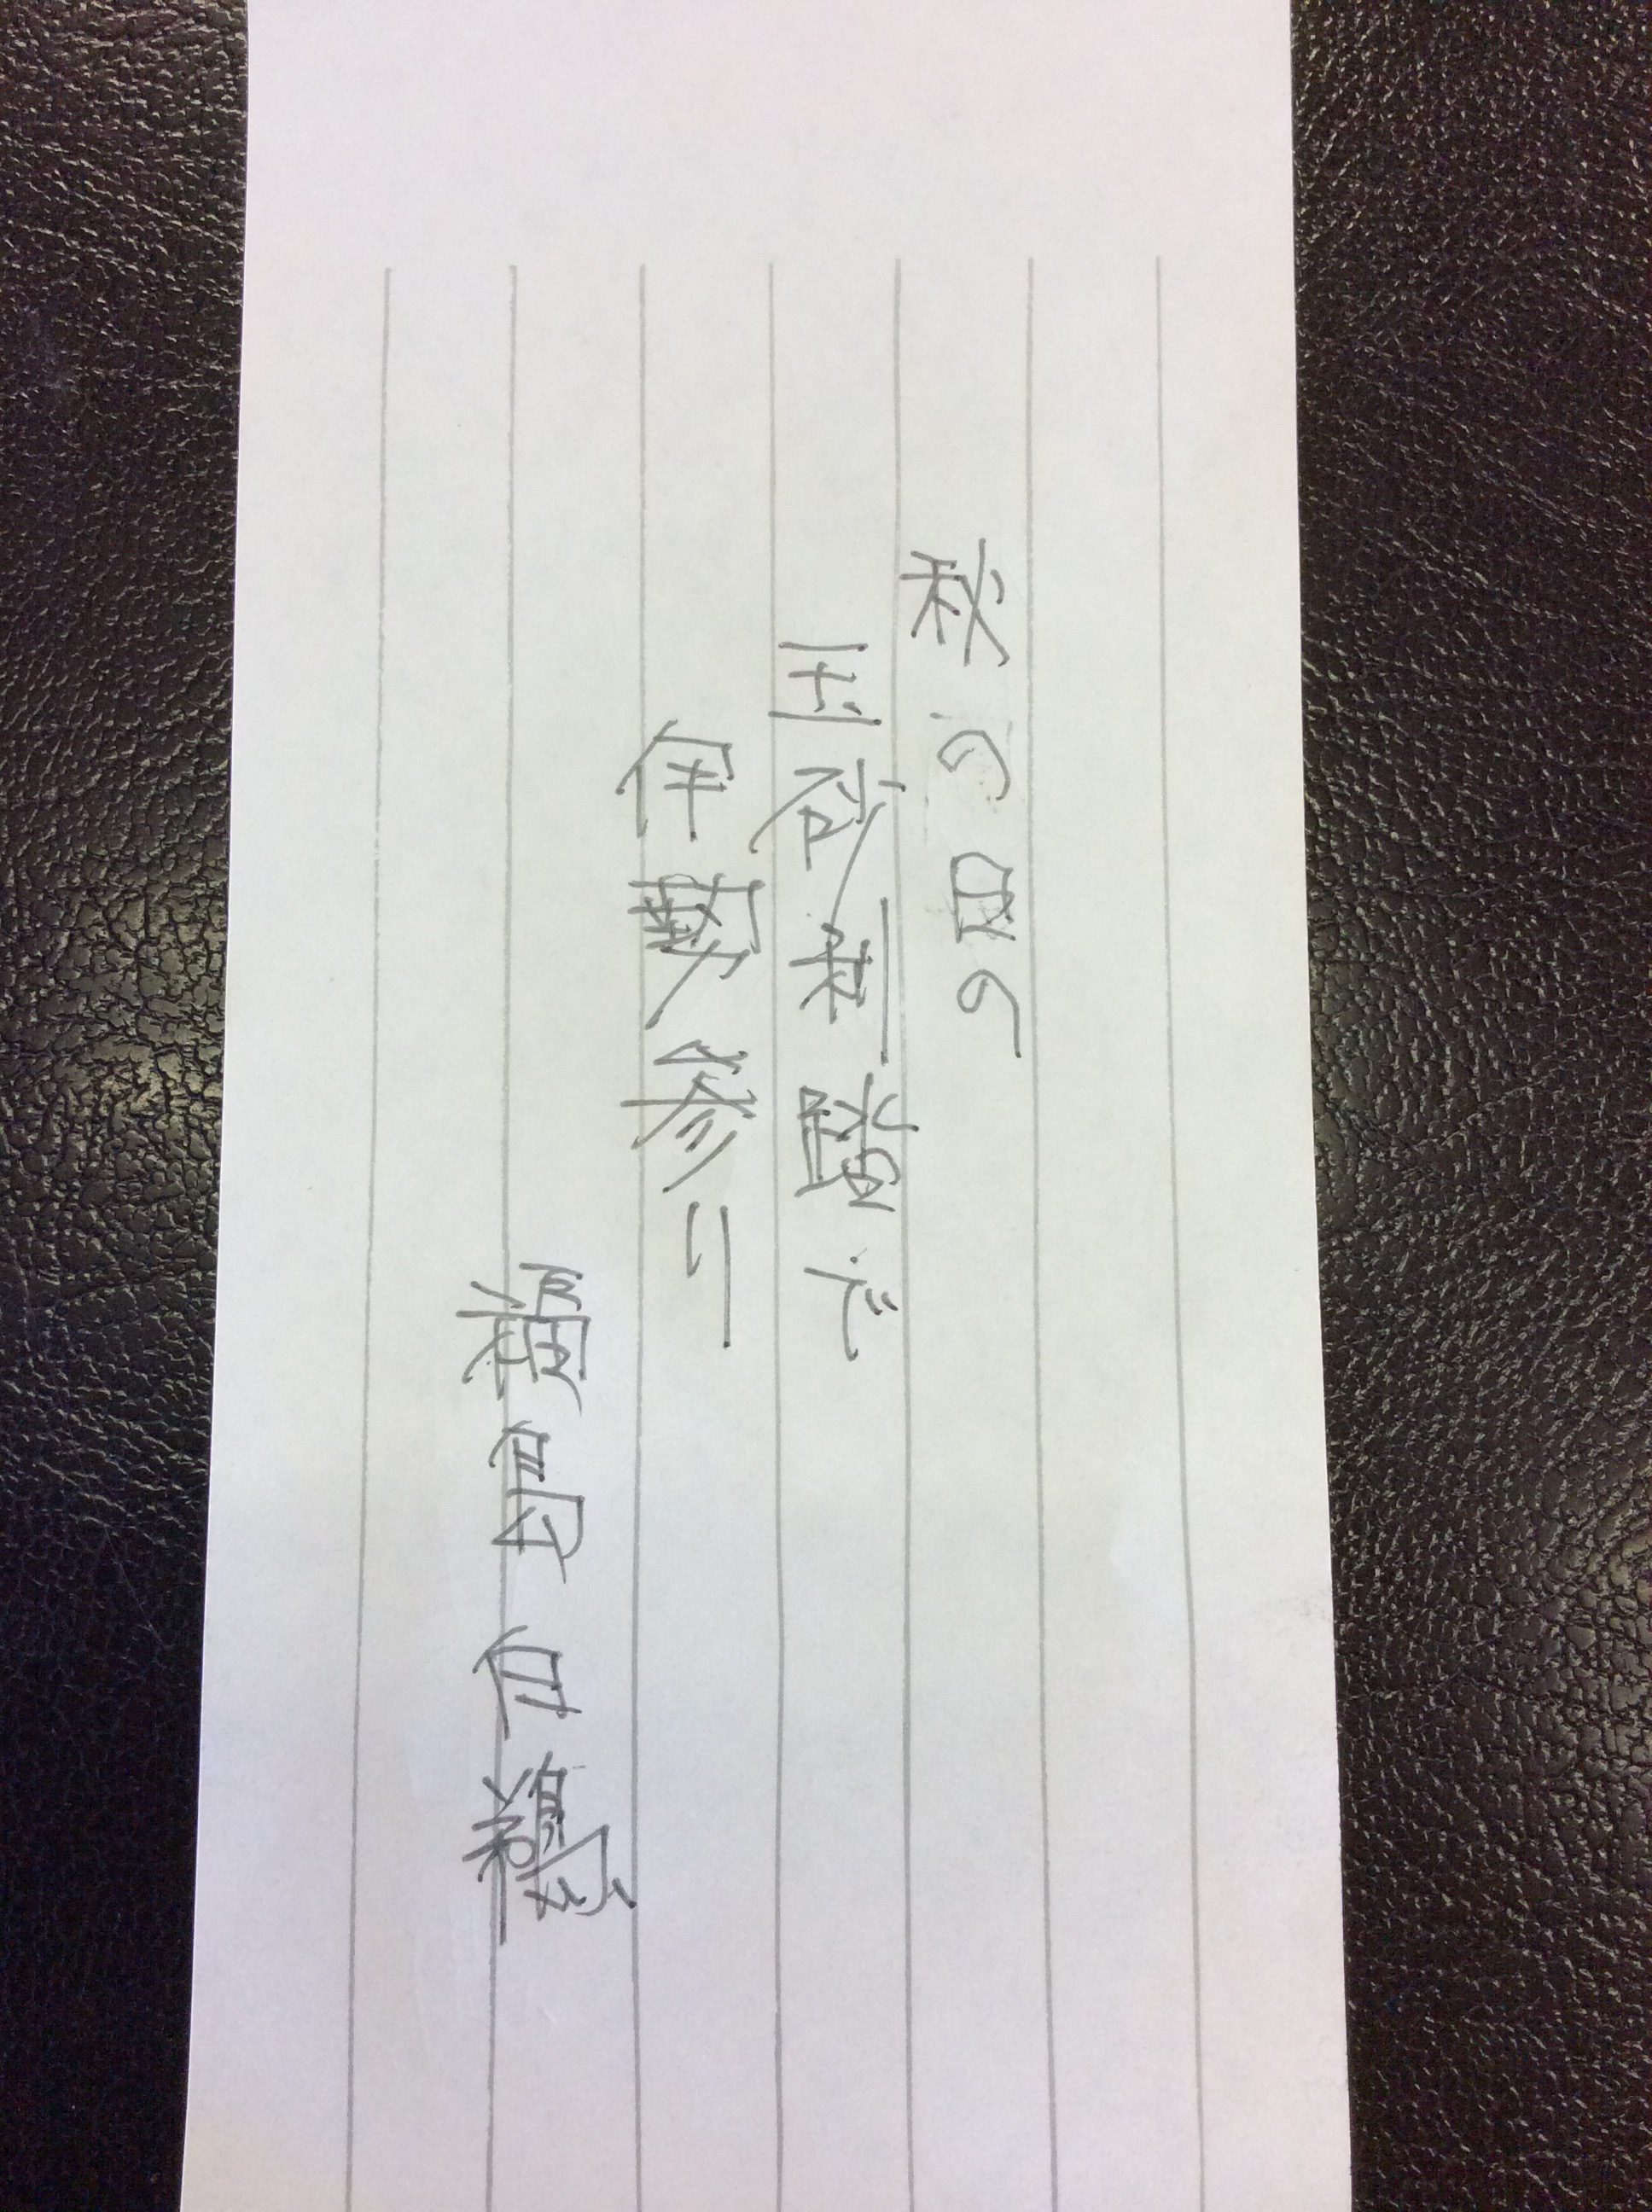 秋の日の
玉砂利踏で
伊勢参り
福寿白鶴